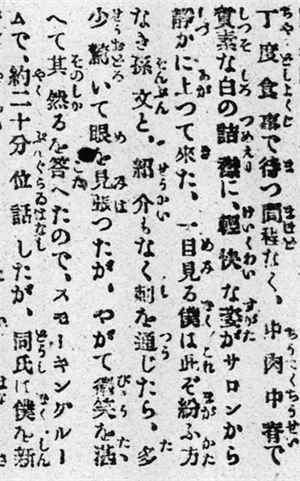 丁度食事で待つ間程なく、中肉中脊で
質素な白の詰襟に、輕快な姿がサロンから
靜かに上つて來た、一目見る僕は此ぞ紛ふ方
なき孫文と。紹介もなく刺を通じたら、多
少驚いて眼を見張つたが、やがて微笑を湛
へて其然るを答へたので、スモーキングルー
ムで、約二十分位話したが、同氏は僕を新